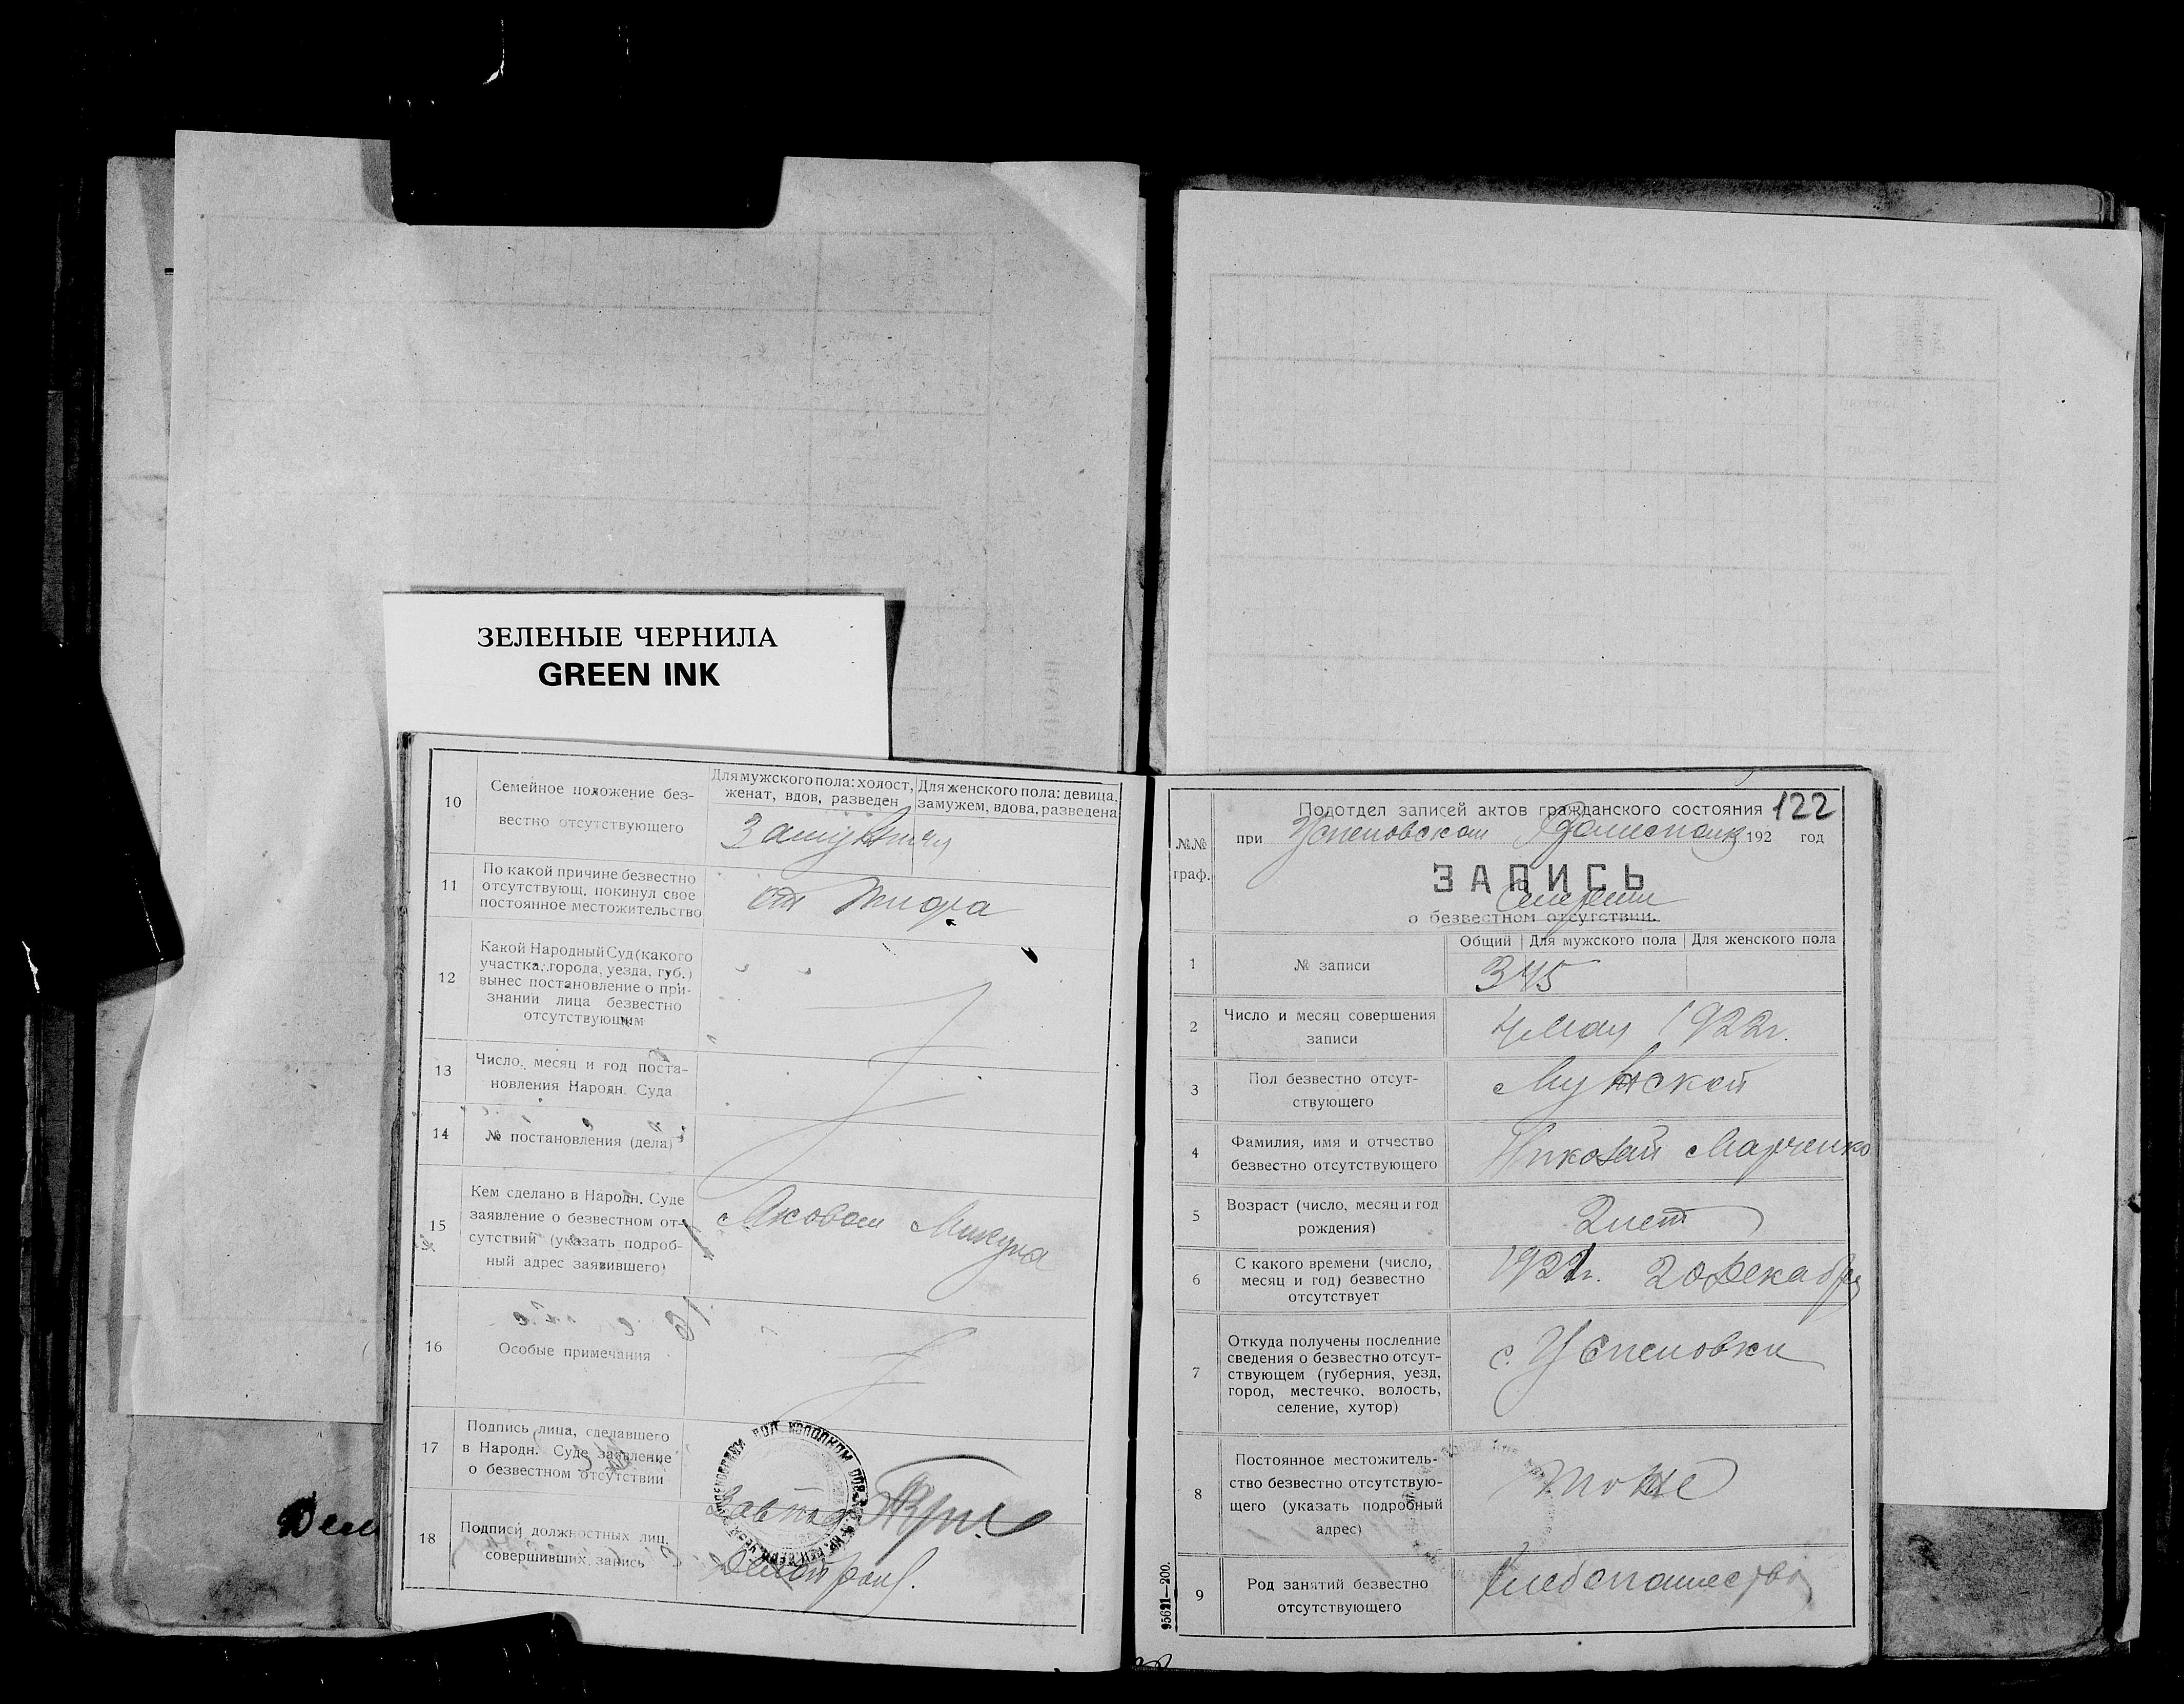 ЗЕЛЕНЫЕ ЧЕРНИЛА
GREEN INK
10
Семейное положение без-
вестно отсутствующего
Для мужского пола: холост,
женат, вдов, разведен
Для женского пола: девица,
замужем, вдова, разведена
11
По какой причине безвестно
отсутствующ. покинул свое
постоянное местожительство
от тифа
12
Какой Народный Суд (какого
участка, города, уезда, губ.)
вынес постановление о при-
знании лица безвестно
отсутствующим
13
Число, месяц и год поста-
новления Народн. Суда
14
№ постановления (дела)
15
Кем сделано в Народн. Суде
заявление о безвестном от-
сутствий (указать подроб-
ный адрес заявившего)
Яковом
16
Особые примечания
17
Подпись лица, сделавшего
в Народн. Суде заявление
о безвестном отсутствии
18
Подписи должностных лиц,
совершивших запись
122
Подотдел записей актов гражданского состояния
при Успеновском 192 год
№№
граф.
ЗАПИСЬ
Смерти
о безвестном отсутствии.
Общий
Для мужского пола
Для женского пола
1
№ записи
345
2
Число и месяц совершения
записи
4 Мая 1922 г.
3
Пол безвестно отсут-
ствующего
Мужской
4
Фамилия, имя и отчество
безвестно отсутствующего
Николай Марченко
5
Возраст (число, месяц и год
рождения)
2 лет
6
С какого времени (число,
месяц и год) безвестно
отсутствует
1921 г. 20 Декабря
7
Откуда получены последние
сведения о безвестно отсут-
ствующем (губерния, уезд,
город, местечко, волость,
селение, хутор)
с. Успеновки
8
Постоянное местожитель-
ство безвестно отсутствую-
щего (указать подробный
адрес)
тоже
9
Род занятий безвестно
отсутствующего
хлебопашество
95621—200.